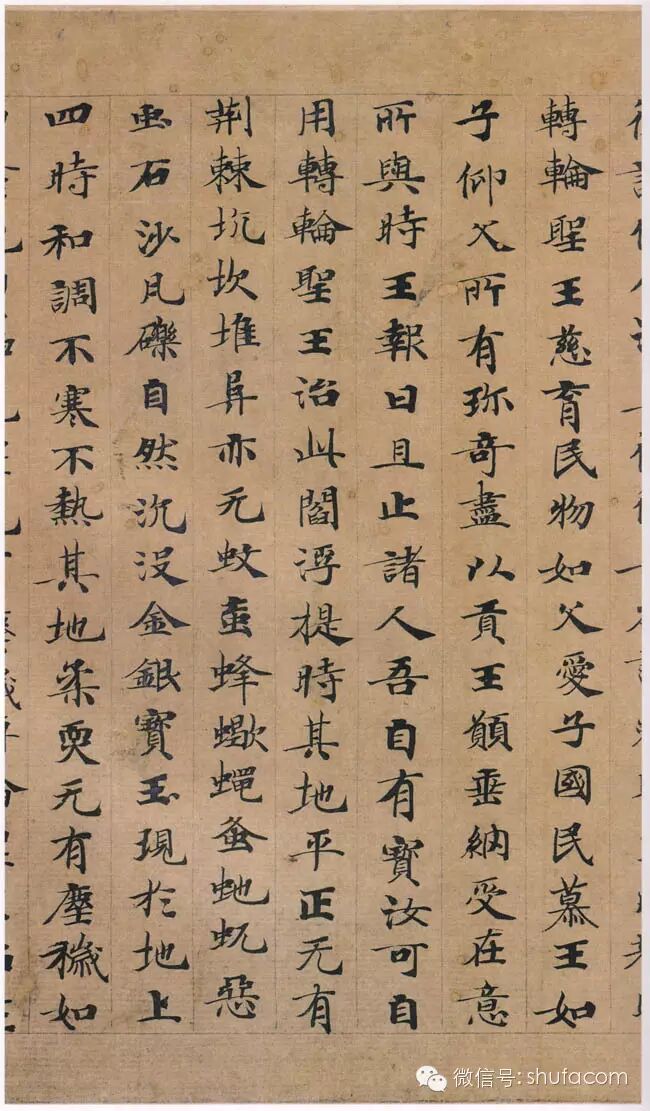 轉輪聖王慈育民物如父愛子國民慕王如
子仰父所有珎奇盡以貢王願垂納受在意
所與時王報曰且止諸人吾自有寶汝可自
用轉輪聖王治此閻浮提時其地平正无有
荊棘坑坎堆阜亦无蚊虻蜂蠍蠅蚤虵蚖惡
虫石沙瓦礫自然沉没金銀寶玉現於地上
四時和調不寒不熱其地柔耎无有塵穢如
微信号: shufacom